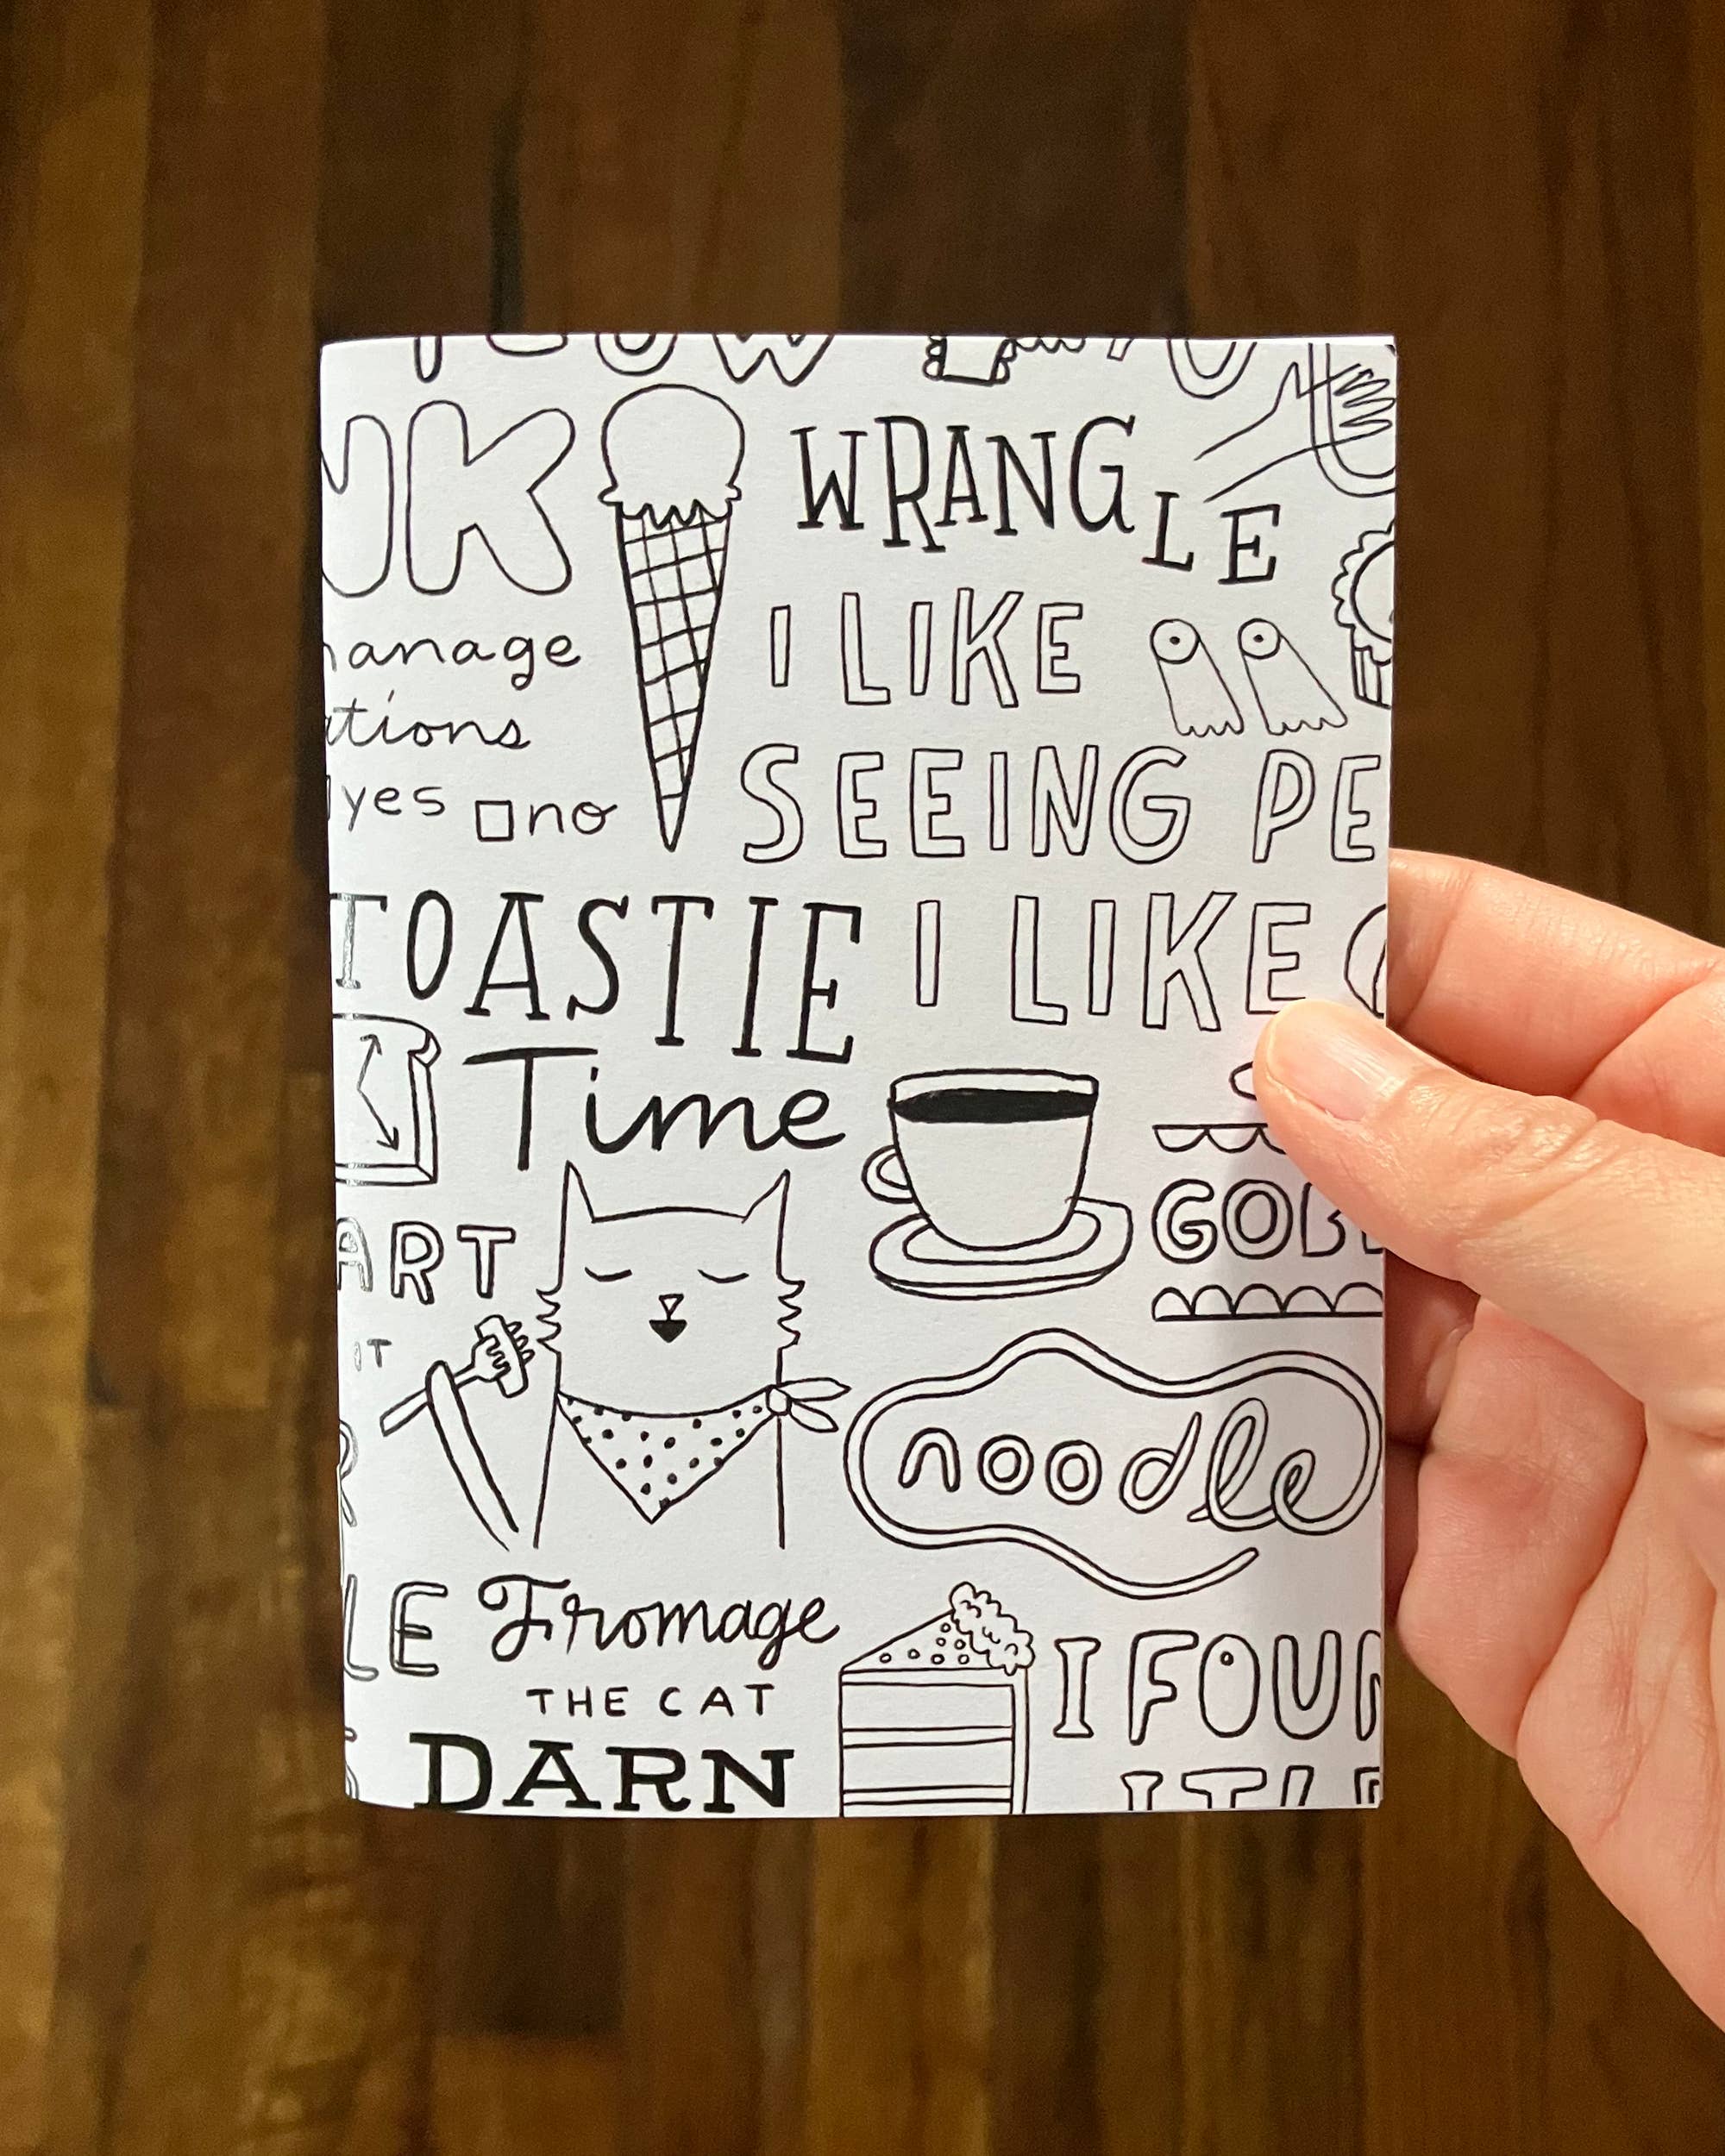 WRANGLE
anage
I LIKE
ations
SEEING PE
yes □ no
TOASTIE
I LIKE
Time
GOB
ART
IT
noodle
LE
Fromage
THE CAT
I FOUN
DARN